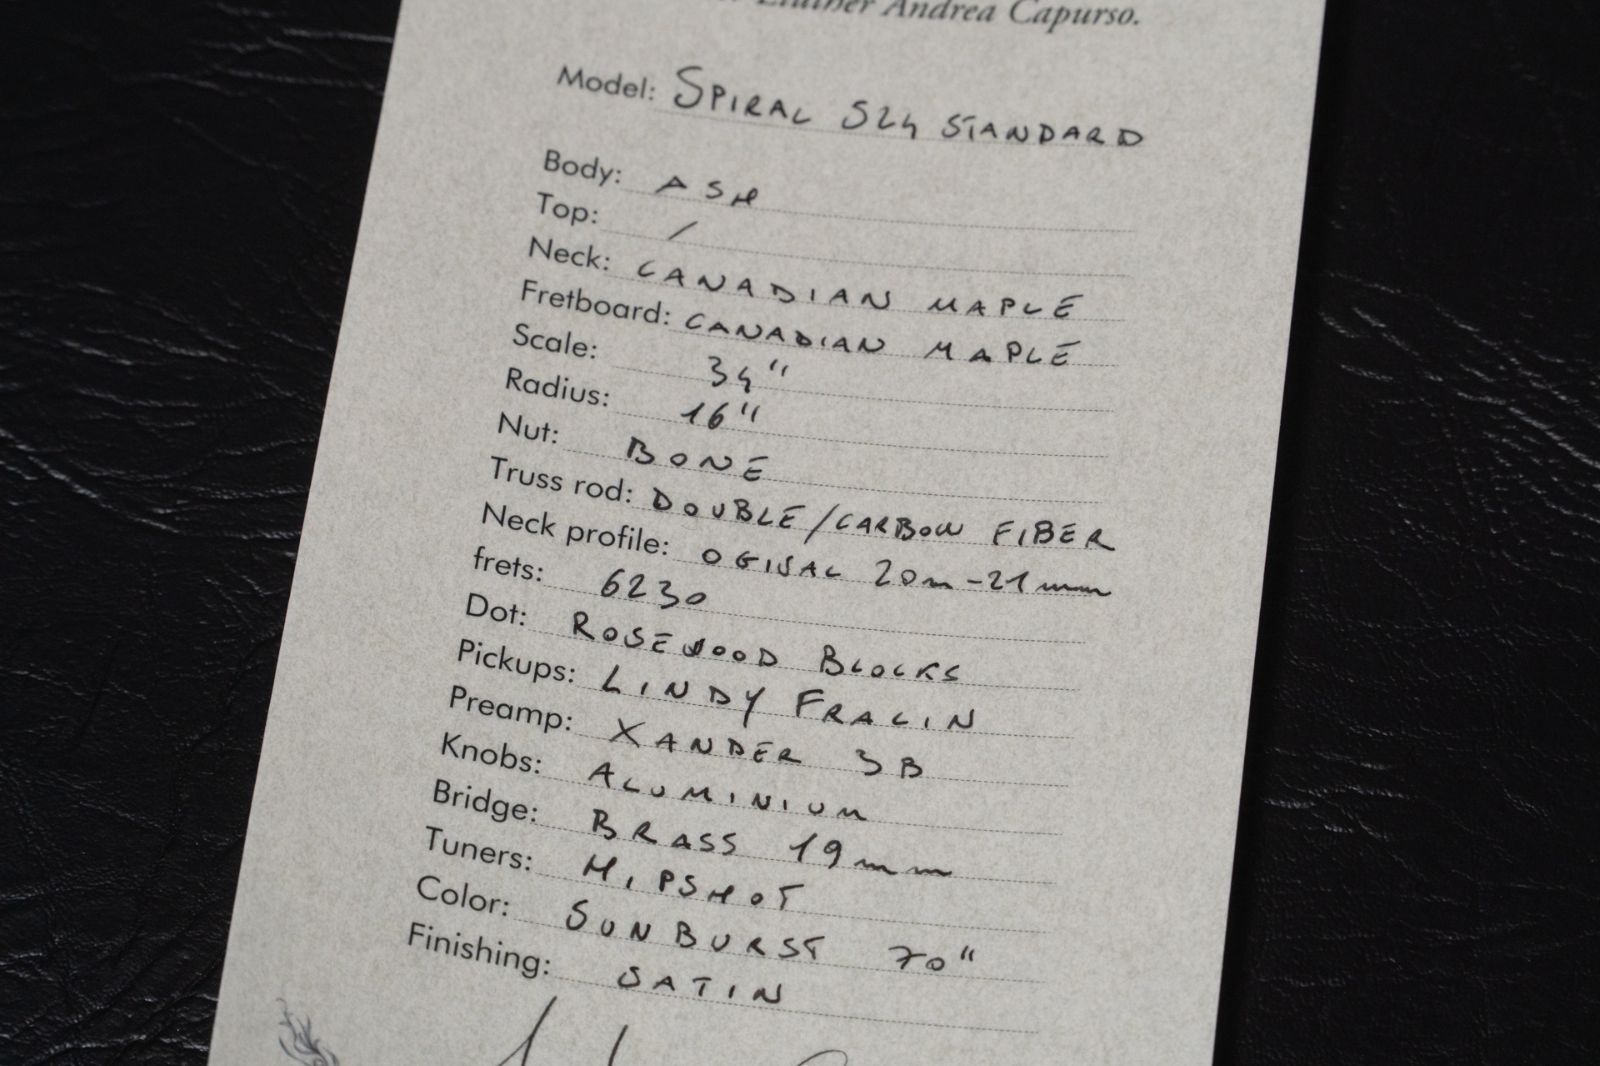 Luther Andrea Capurso.
Model: SPIRAL S24 STANDARD
Body: ASH
Top: /
Neck: CANADIAN MAPLE
Fretboard: CANADIAN MAPLE
Scale: 34"
Radius: 16"
Nut: BONE
Truss rod: DOUBLE/CARBON FIBER
Neck profile: OGIVAL 20m-21mm
frets: 6230
Dot: ROSEWOOD BLOCKS
Pickups: LINDY FRALIN
Preamp: XANDER 3B
Knobs: ALUMINIUM
Bridge: BRASS 19mm
Tuners: HIPSHOT
Color: SUNBURST 70"
Finishing: SATIN